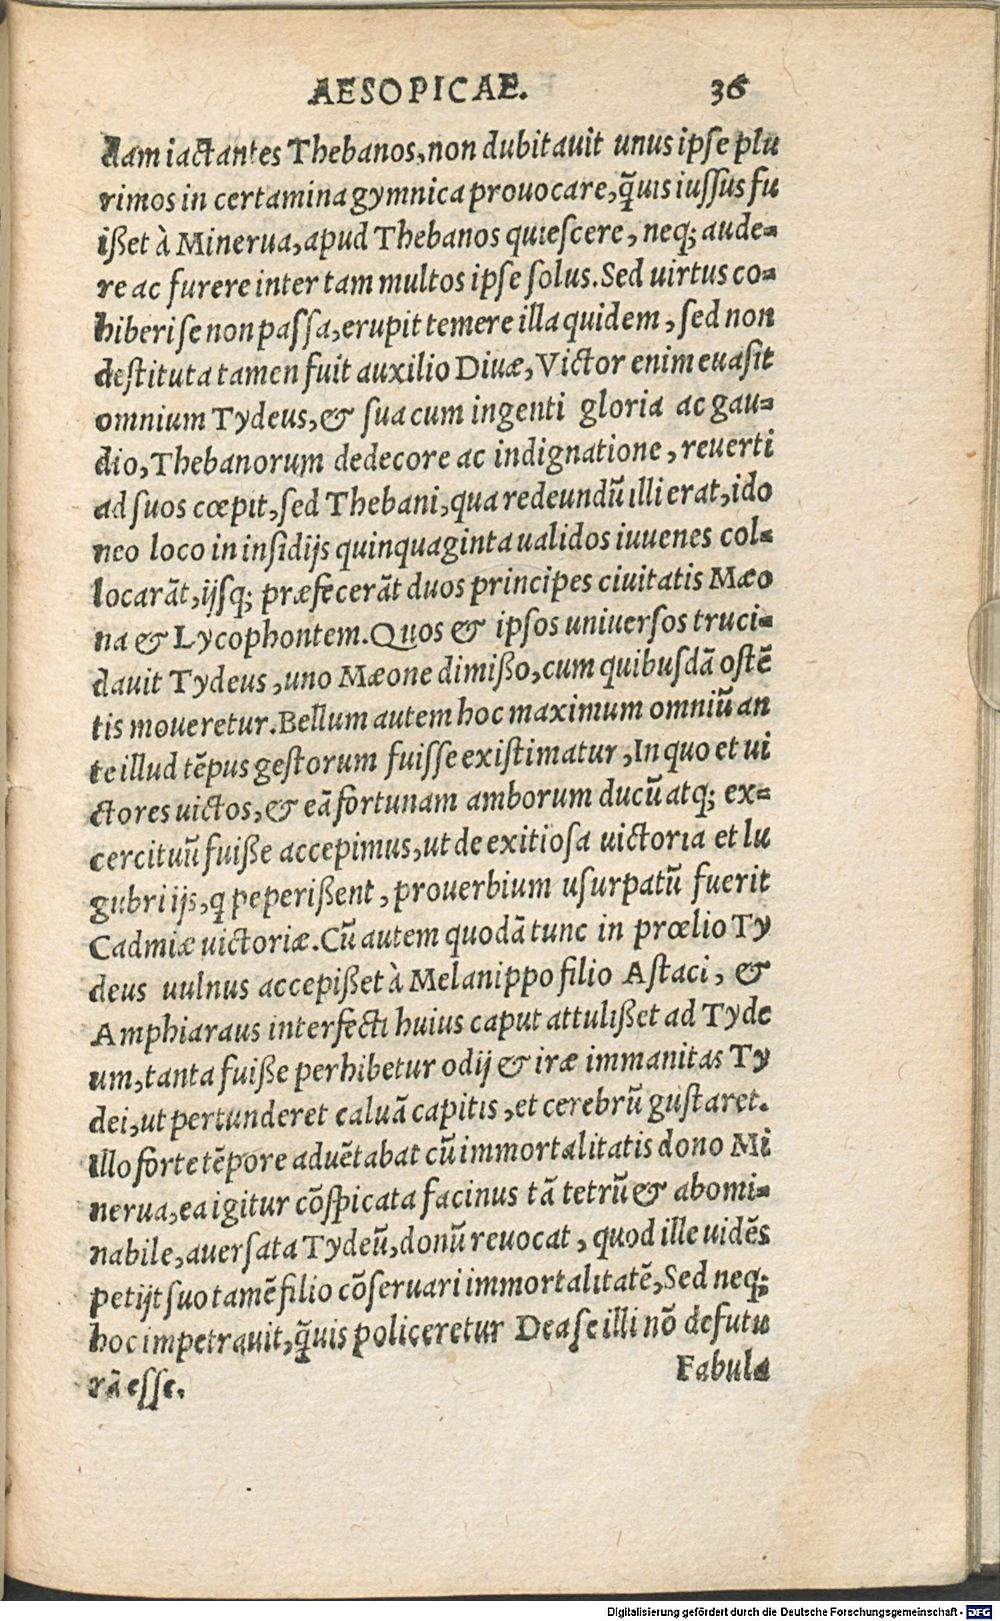 AESOPICAE. 36
dam iactantes Thebanos, non dubitauit unus ipse plu
rimos in certamina gymnica prouocare, q̃uis iussus fu
ißet à Minerua, apud Thebanos quiescere, neq; aude-
re ac furere inter tam multos ipse solus. Sed uirtus co-
hiberi se non passa, erupit temere illa quidem, sed non
destituta tamen fuit auxilio Diuæ, Victor enim euasit
omnium Tydeus, & sua cum ingenti gloria ac gau-
dio, Thebanorum dedecore ac indignatione, reuerti
ad suos cœpit, sed Thebani, qua redeundũ illi erat, ido
neo loco in insidijs quinquaginta ualidos iuuenes col-
locarãt, ijsq; præfecerãt duos principes ciuitatis Mæo
na & Lycophontem. Quos & ipsos uniuersos truci-
dauit Tydeus, uno Mæone dimißo, cum quibusdã ostẽ
tis moueretur. Bellum autem hoc maximum omniũ an
te illud tẽpus gestorum fuisse existimatur, In quo et ui
ctores uictos, & eã fortunam amborum ducũ atq; ex-
cercituũ fuiße accepimus, ut de exitiosa uictoria et lu
gubri ijs, q peperißent, prouerbium usurpatũ fuerit
Cadmiæ uictoriæ. Cũ autem quodã tunc in prœlio Ty
deus uulnus accepißet à Melanippo filio Astaci, &
Amphiaraus interfecti huius caput attulißet ad Tyde
um, tanta fuiße perhibetur odij & iræ immanitas Ty
dei, ut pertunderet caluã capitis, et cerebrũ gustaret.
Illo forte tẽpore aduẽtabat cũ immortalitatis dono Mi
nerua, ea igitur cõspicata facinus tã tetrũ & abomi-
nabile, auersata Tydeũ, donũ reuocat, quod ille uidẽs
petijt suo tamẽ filio cõseruari immortalitatẽ, Sed neq;
hoc impetrauit, q̃uis policeretur Dea se illi nõ defutu
rã esse.
Fabula
Digitalisierung gefördert durch die Deutsche Forschungsgemeinschaft - DFG